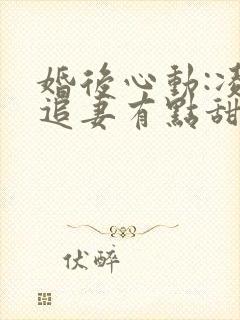 婚後心動:凌
追妻有點甜
伏醉